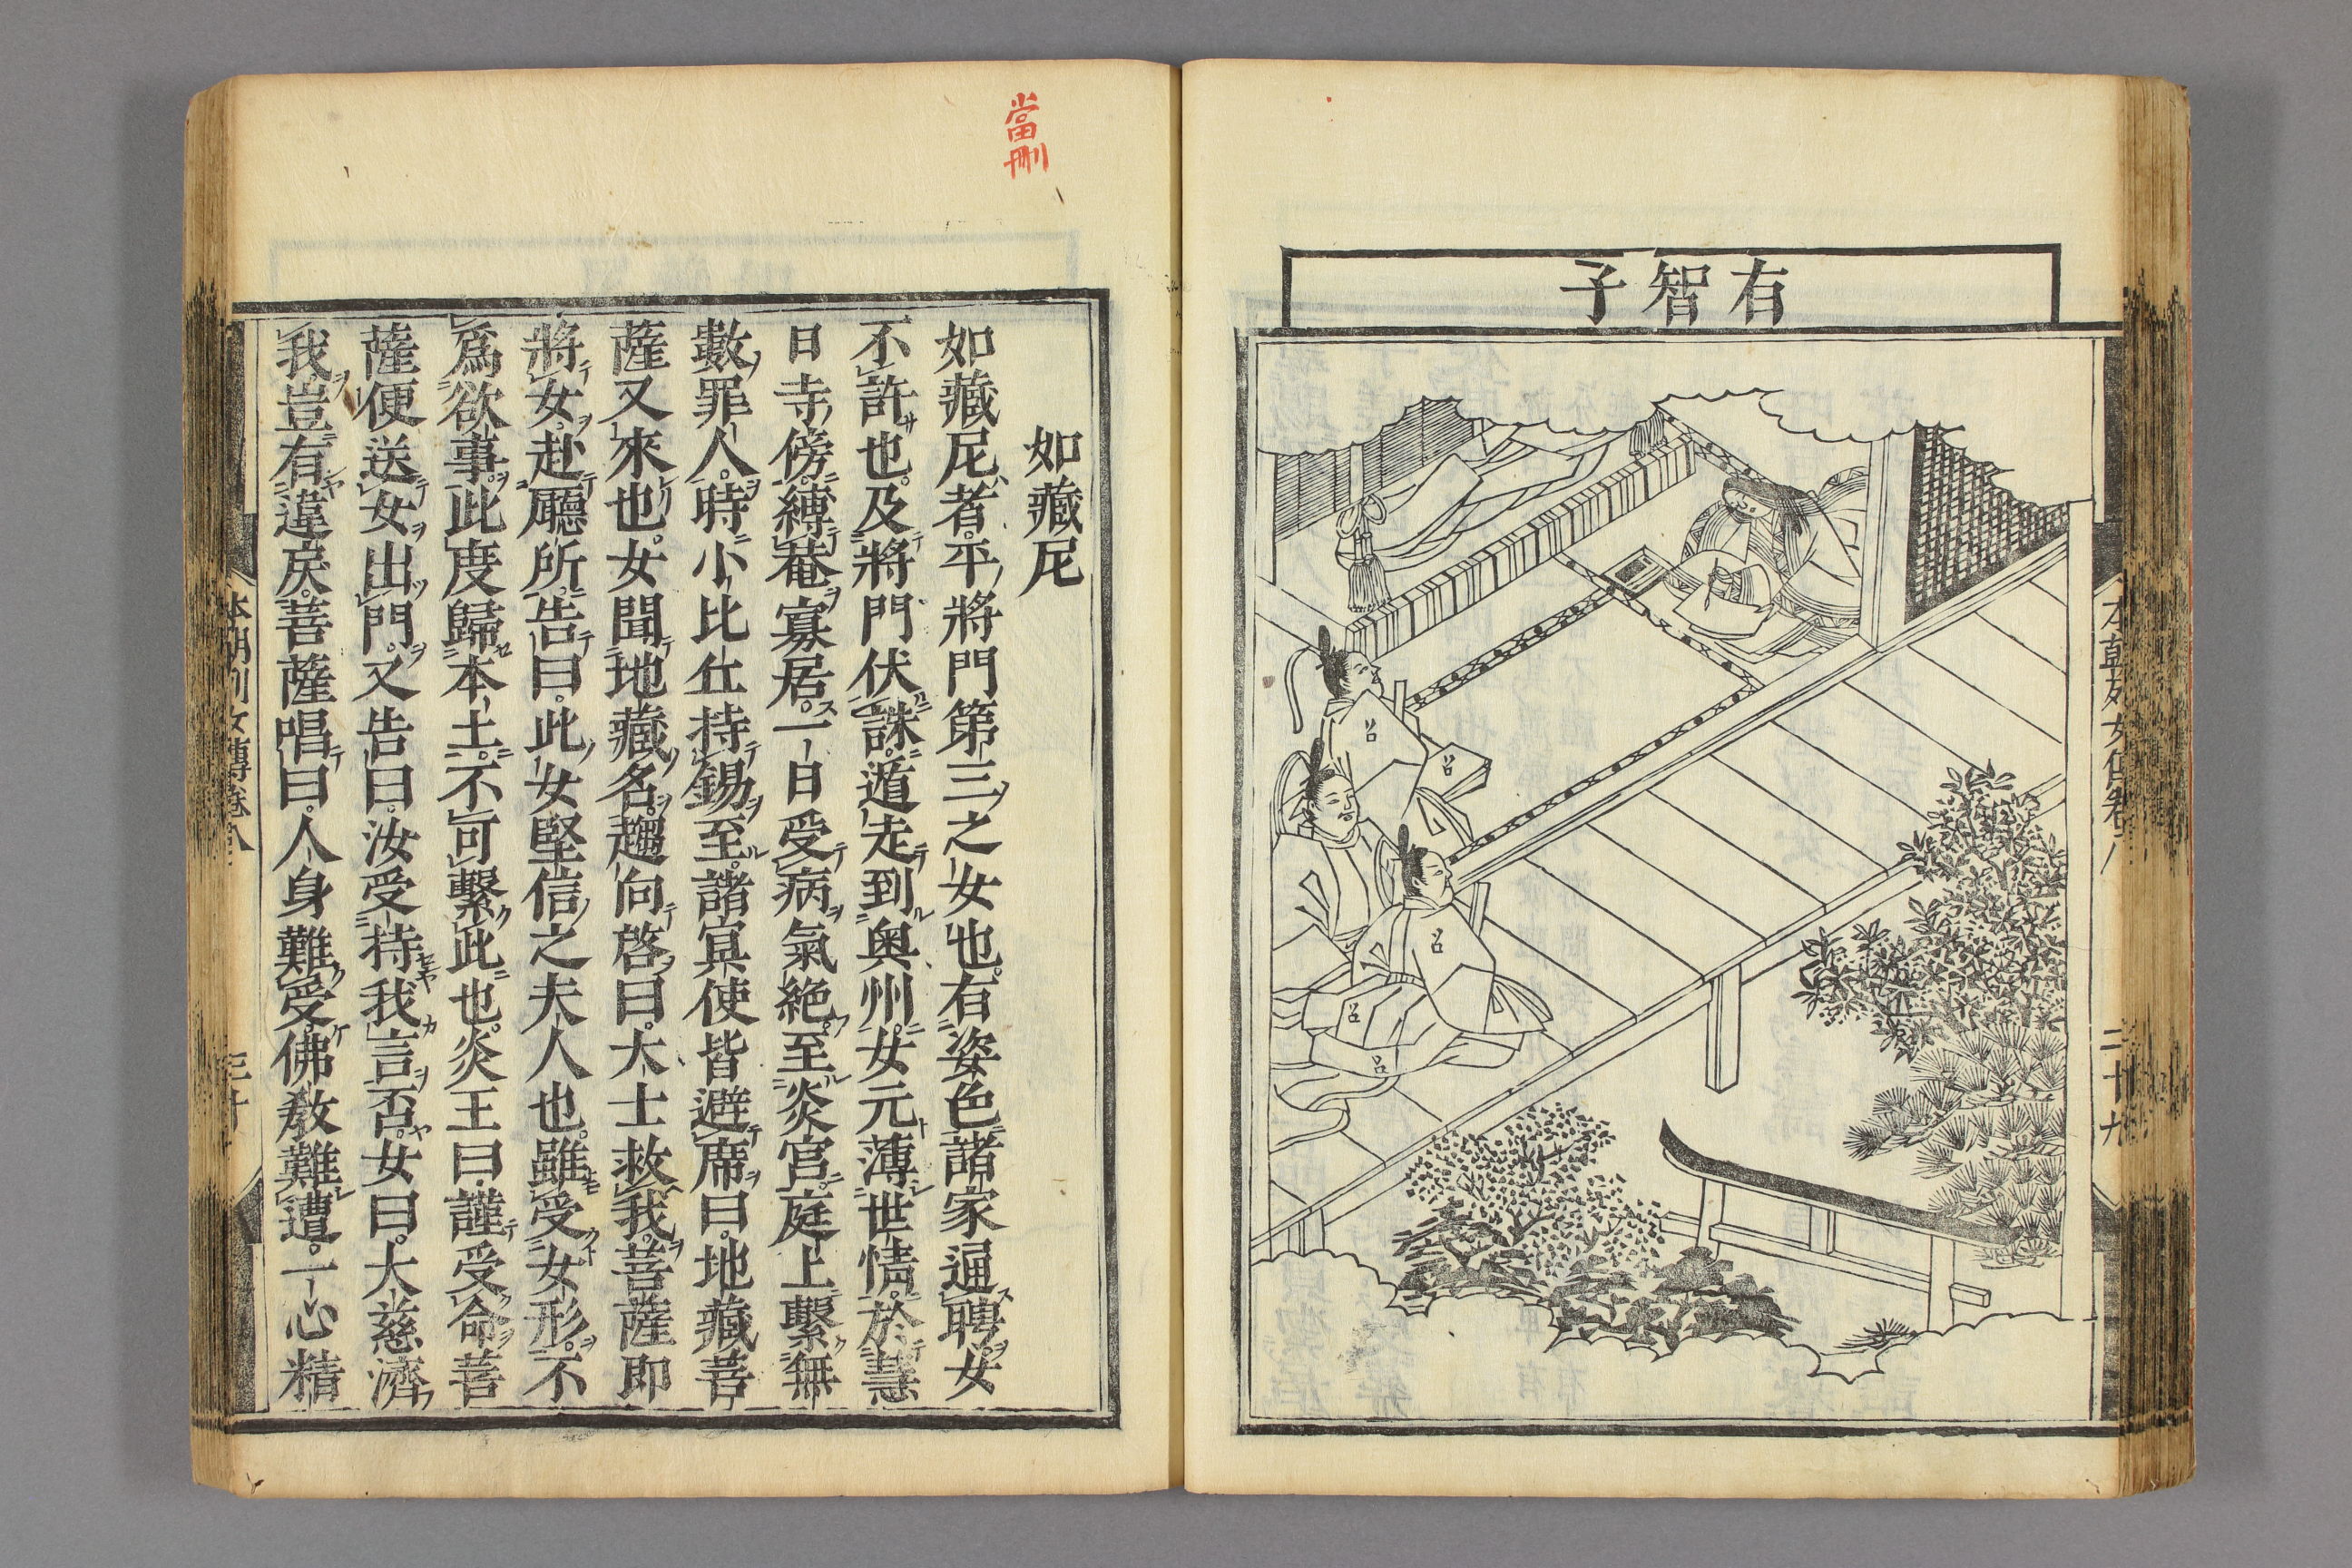 有智子
本朝列女傳卷八
二十九
當刪
如藏尼
如藏尼者。平將門第三之女也。有姿色諸家逼聘。女
不許也。及將門伏誅。遁走到奥州。女元薄世情。於慧
日寺傍。縛菴寡居。一日受病氣絶。至炎官庭上繫無
數罪人。時小比丘持錫至。諸冥使皆避席曰。地藏菩
薩又來也。女聞地藏名。趨向啓曰。大士救我。菩薩即
將女。赴廳所。告曰。此女堅信之夫人也。雖受女形。不
爲欲事。此度歸本土。不可繫此也。炎王曰。謹受命。菩
薩便送女出門。又告曰。汝受持我言否。女曰。大慈濟
我豈有違戾。菩薩唱曰。人身難受。佛教難遭。一心精
本朝列女傳卷八
三十